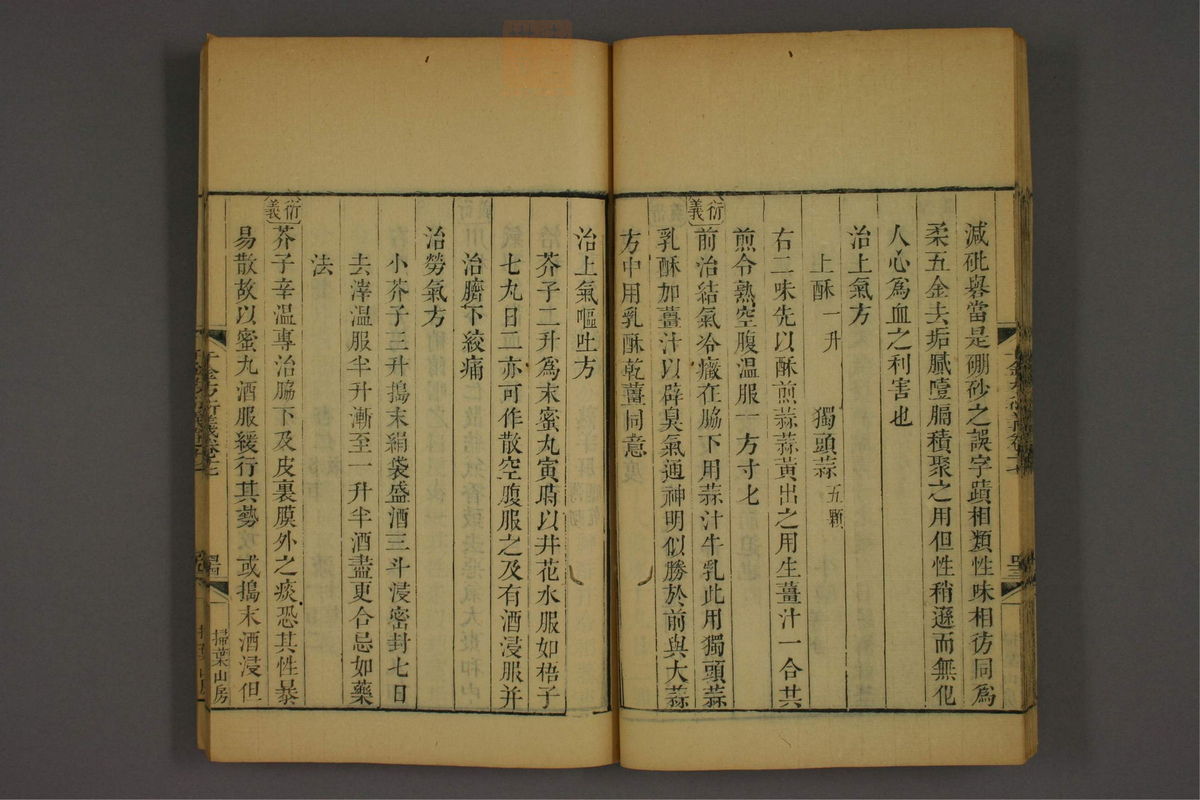 減砒礜當是硼砂之誤字蹟相類性味相彷同爲
柔五金去垢膩噎膈積聚之用但性稍遜而無化
人心爲血之利害也
治上氣方
上酥一升 獨頭蒜五顆
右二味先以酥煎蒜蒜黃出之用生薑汁一合共
煎令熟空腹溫服一方寸匕
衍義
前治結氣冷癥在脇下用蒜汁牛乳此用獨頭蒜
乳酥加薑汁以辟臭氣通神明似勝於前與大蒜
方中用乳酥乾薑同意
治上氣嘔吐方
芥子二升爲末蜜丸寅時以井花水服如梧子
七丸日二亦可作散空腹服之及有酒浸服并
治臍下絞痛
治勞氣方
小芥子三升搗末絹袋盛酒三斗浸密封七日
去滓溫服半升漸至一升半酒盡更合忌如藥
法
衍義
芥子辛溫專治脇下及皮裏膜外之痰恐其性暴
易散故以蜜丸酒服緩行其勢或搗末酒浸但
掃葉山房